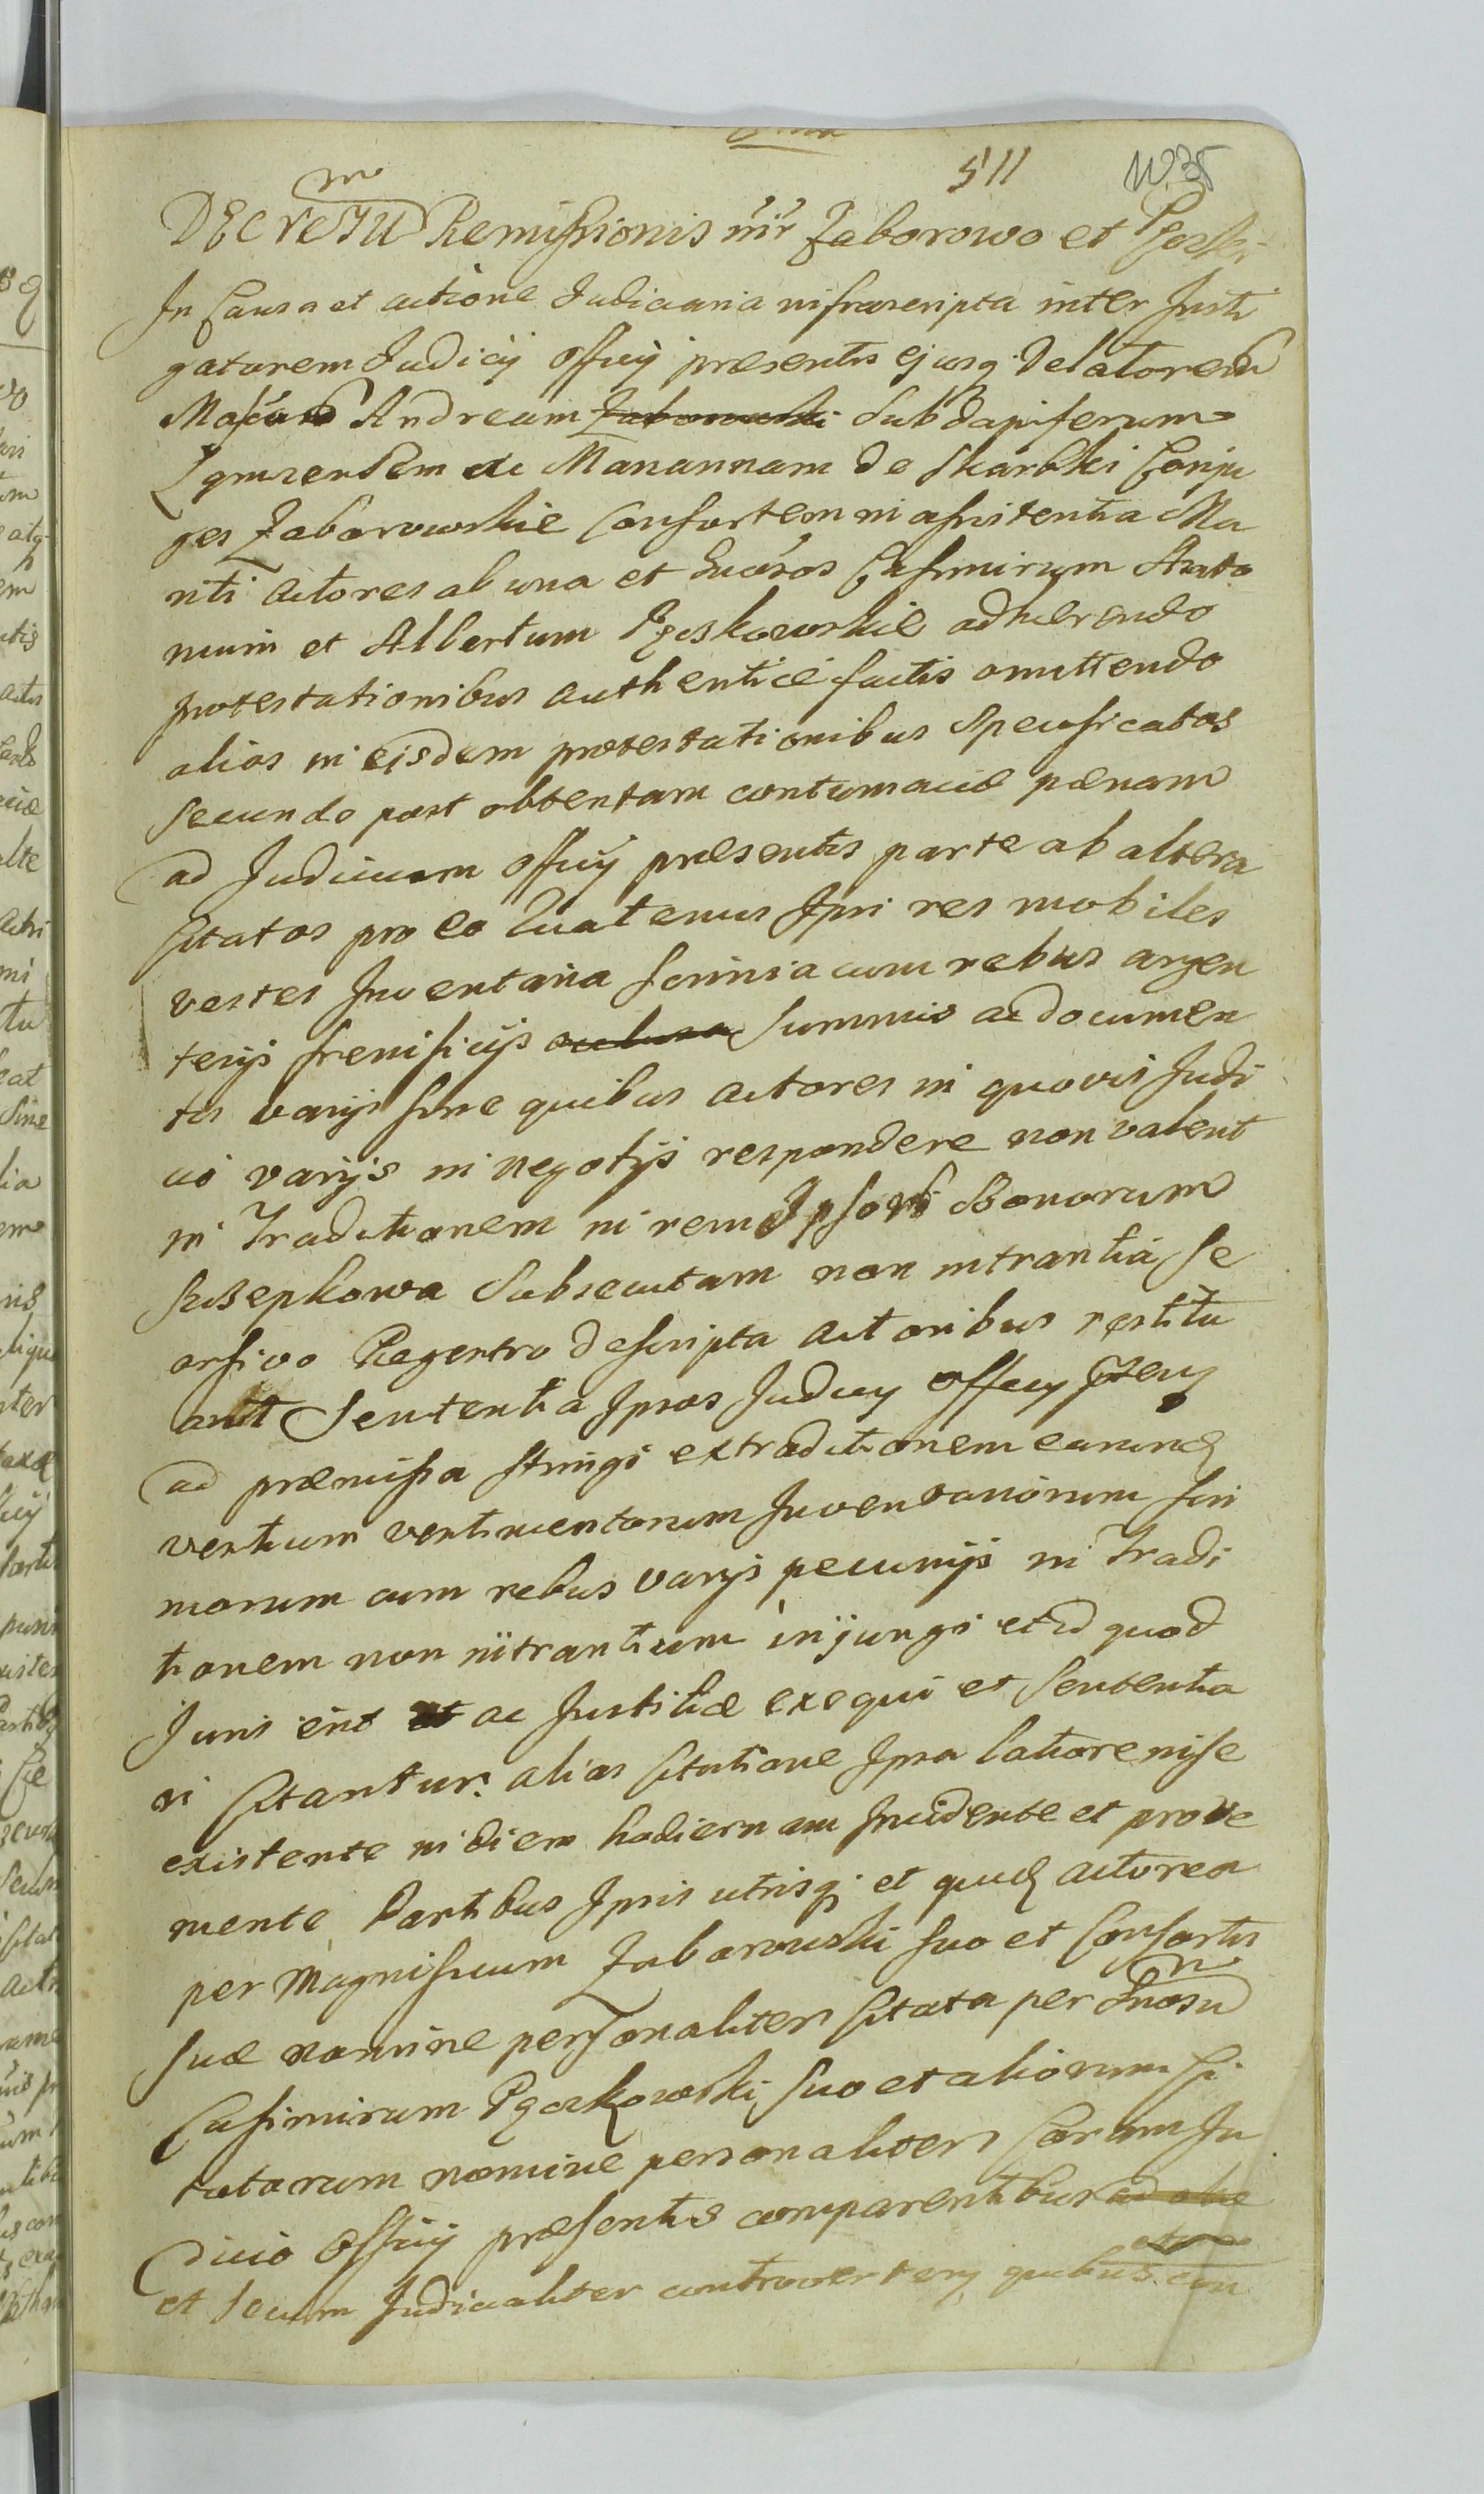 511
DECReTUm Remissionis inr Zaborowo et
In Causa et actione Judiciaria infrascripta inter Insti
gatorem Judicij Officij praesentis ejusq Delatorem
Andream Zaborowski Subdapiferum
Zgmirensem ac Mariannam de Skarbki Conju
ges Zaborowskie Consortem in assistentia Ma
riti Actores ab una et Gnosos Casimirum Anto
nium et Albertum Pgoskowskie adhaerendo
protestationibus authenticè factis omittendo
alios in eisdem protestationibus specificatos
secundo post obtentam contumaciae paenam
ad Judicium Officij praesentis parte ab altera
Citatos pro eo Quatenus Ipsi res mobiles
vestes Inventaria scrinia cum rebus argen
teis frenificijs summis ac documen
tis varijs sine quibus Actores in quovis Judi
cio varijs in negotijs respondere non valent
in Traditionem in rem Ipsors Bonorum
Subsecutam non intrantia se
orsivo Regestro descripta Actoribus restitu
ant Sententia Ipsos Judicij Officij
ad praemissa stringi extraditionem earund
vestium vestimentorum Inventariorum scri
niorum cum rebus varijs pecunijs in Tradi
tionem non intrantium injungi et id quod
Juris erit et ac Justitiae exequi et Sententia
ri Citantur. alias Citatione Ipsa latiore in se
existente in diem hodiernam Incidente et prove
niente Partibus Ipsis utrisq et quid Actorea
per Magnificum Zaborowski suo et Consortis
suae nomine personaliter Citata per Gnosum
Casimirum Pgoskowski suo et aliorum Ci
tatorum nomine personaliter Coram Ju
dicio Officij praesentis comparentibus ad
et secum Judicialiter controverten quibus